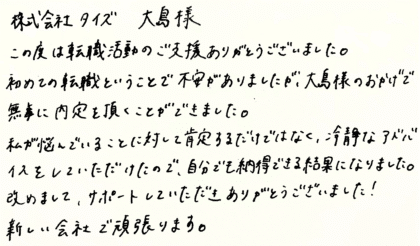 株式会社タイズ 大島様
この度は転職活動のご支援ありがとうございました。
初めての転職ということで不安がありましたが、大島様のおかげで
無事に内定を頂くことができました。
私が悩んでいることに対して肯定するだけではなく、冷静なアドバ
イスをしていただけたので、自分でも納得できる結果になりました。
改めまして、サポートしていただきありがとうございました！
新しい会社で頑張ります。